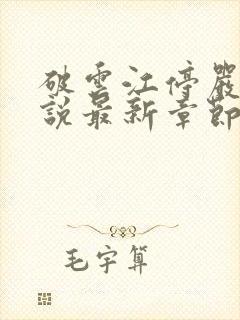 破雲江停嚴
說最新章節
毛宇算